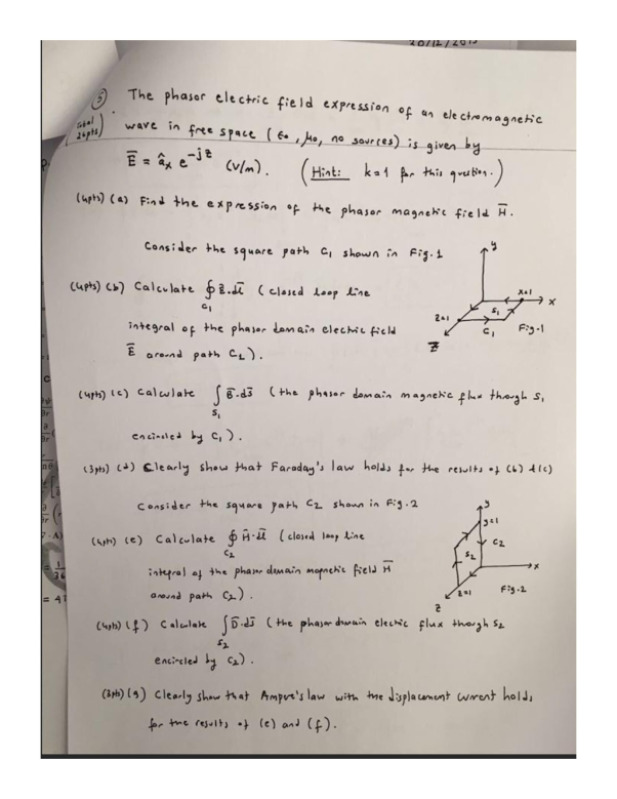 20/12/2015
③ The phasor electric field expression of an electromagnetic
(total 26pts) wave in free space (ε₀, μ₀, no sources) is given by
Ē = âₓ e^(-jz) (V/m). (Hint: k=1 for this question.)
(4pts) (a) Find the expression of the phasor magnetic field H̄.
Consider the square path C₁ shown in Fig.1
(4pts) (b) Calculate ∮_C₁ Ē.dl̄ (closed loop line
integral of the phasor domain electric field
Ē around path C₁).
y
x=1
x
S₁
z=1
C₁
Fig.1
z
(4pts) (c) Calculate ∫_S₁ B̄.ds̄ (the phasor domain magnetic flux through S₁
encircled by C₁).
(3pts) (d) Clearly show that Faraday's law holds for the results of (b) & (c)
Consider the square path C₂ shown in Fig.2
(4pts) (e) Calculate ∮_C₂ H̄.dl̄ (closed loop line
integral of the phasor domain magnetic field H̄
around path C₂).
y
y=1
C₂
S₂
x
z=1
Fig.2
z
(4pts) (f) Calculate ∫_S₂ D̄.ds̄ (the phasor domain electric flux through S₂
encircled by C₂).
(3pts) (g) Clearly show that Ampere's law with the displacement current holds
for the results of (e) and (f).